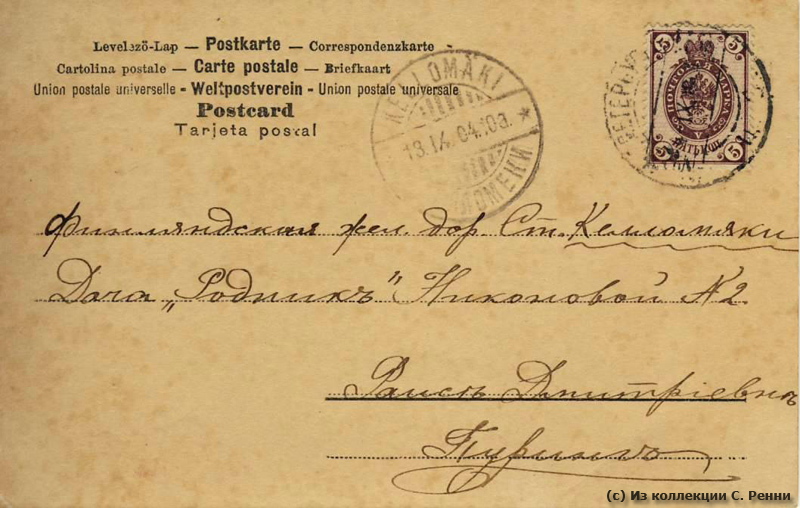 Levelező-Lap — Postkarte — Correspondenzkarte
Cartolina postale — Carte postale — Briefkaart
Union postale universelle - Weltpostverein - Union postale universale
Postcard
Tarjeta postal
KELLOMÄKI
13.IX.04.10a.
5 5
ПОЧТОВАЯ МАРКА
ПЯТЬ КОП.
5 5
Финляндская жел. дор. Ст. Келломяки
Дача „Родникъ" Никоновой N 2.
Раисѣ Дмитріевнѣ
Пуринъ
(c) Из коллекции С. Ренни